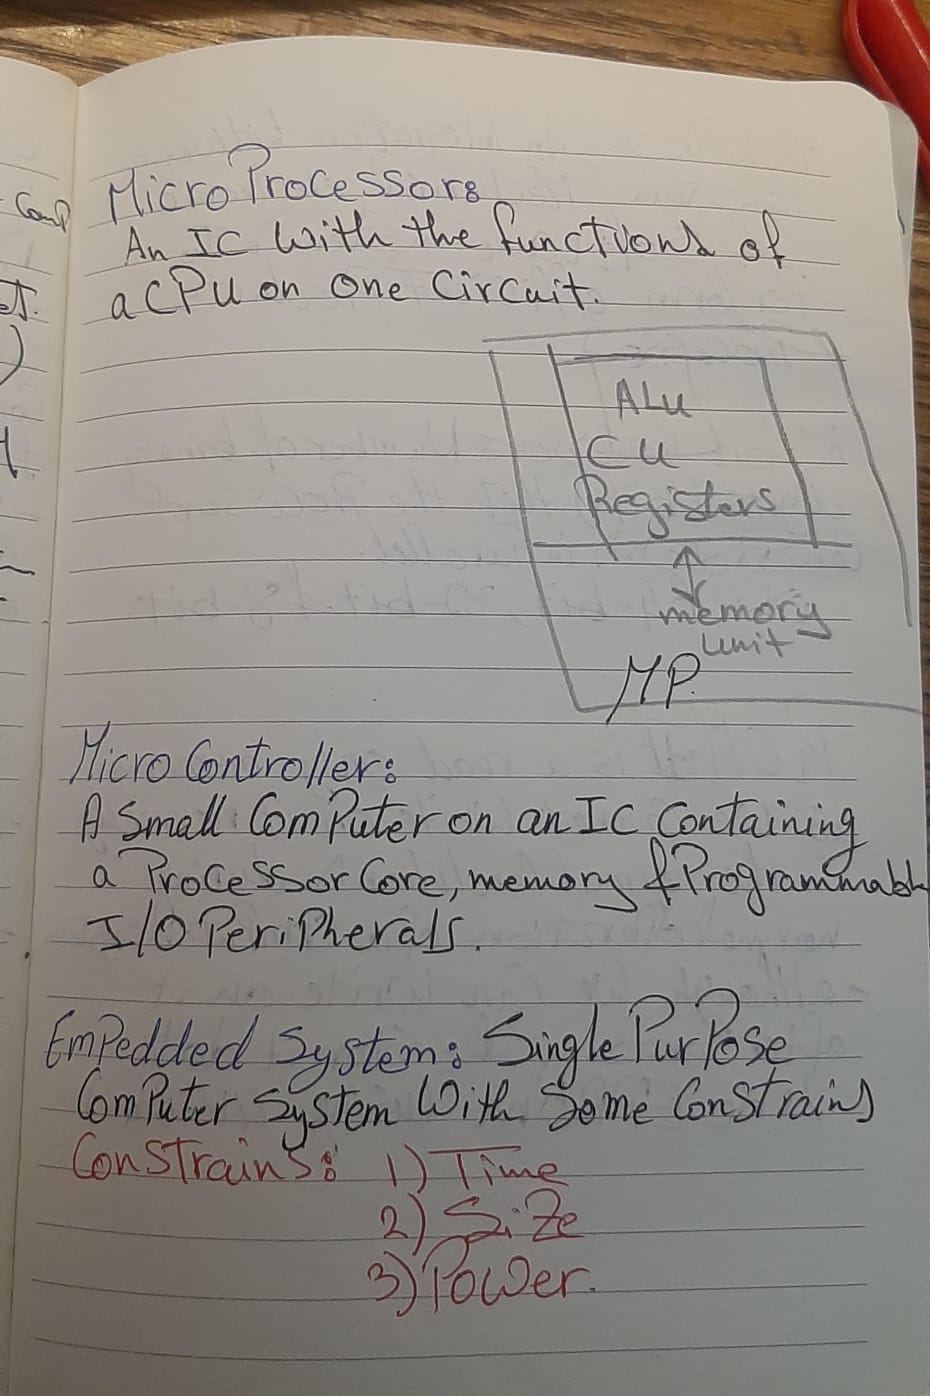 MicroProcessor:
An IC With the functions of
a CPU on one Circuit.
ALU
CU
Registers
memory
unit
MP.
MicroController:
A Small ComPuter on an IC Containing
a ProCeSSor Core, memory & Programmable
I/O PeriPherals.
EmPedded System: Single PurPose
ComPuter System With Some Constrains
Constrains: 1) Time
2) Size
3) Power.